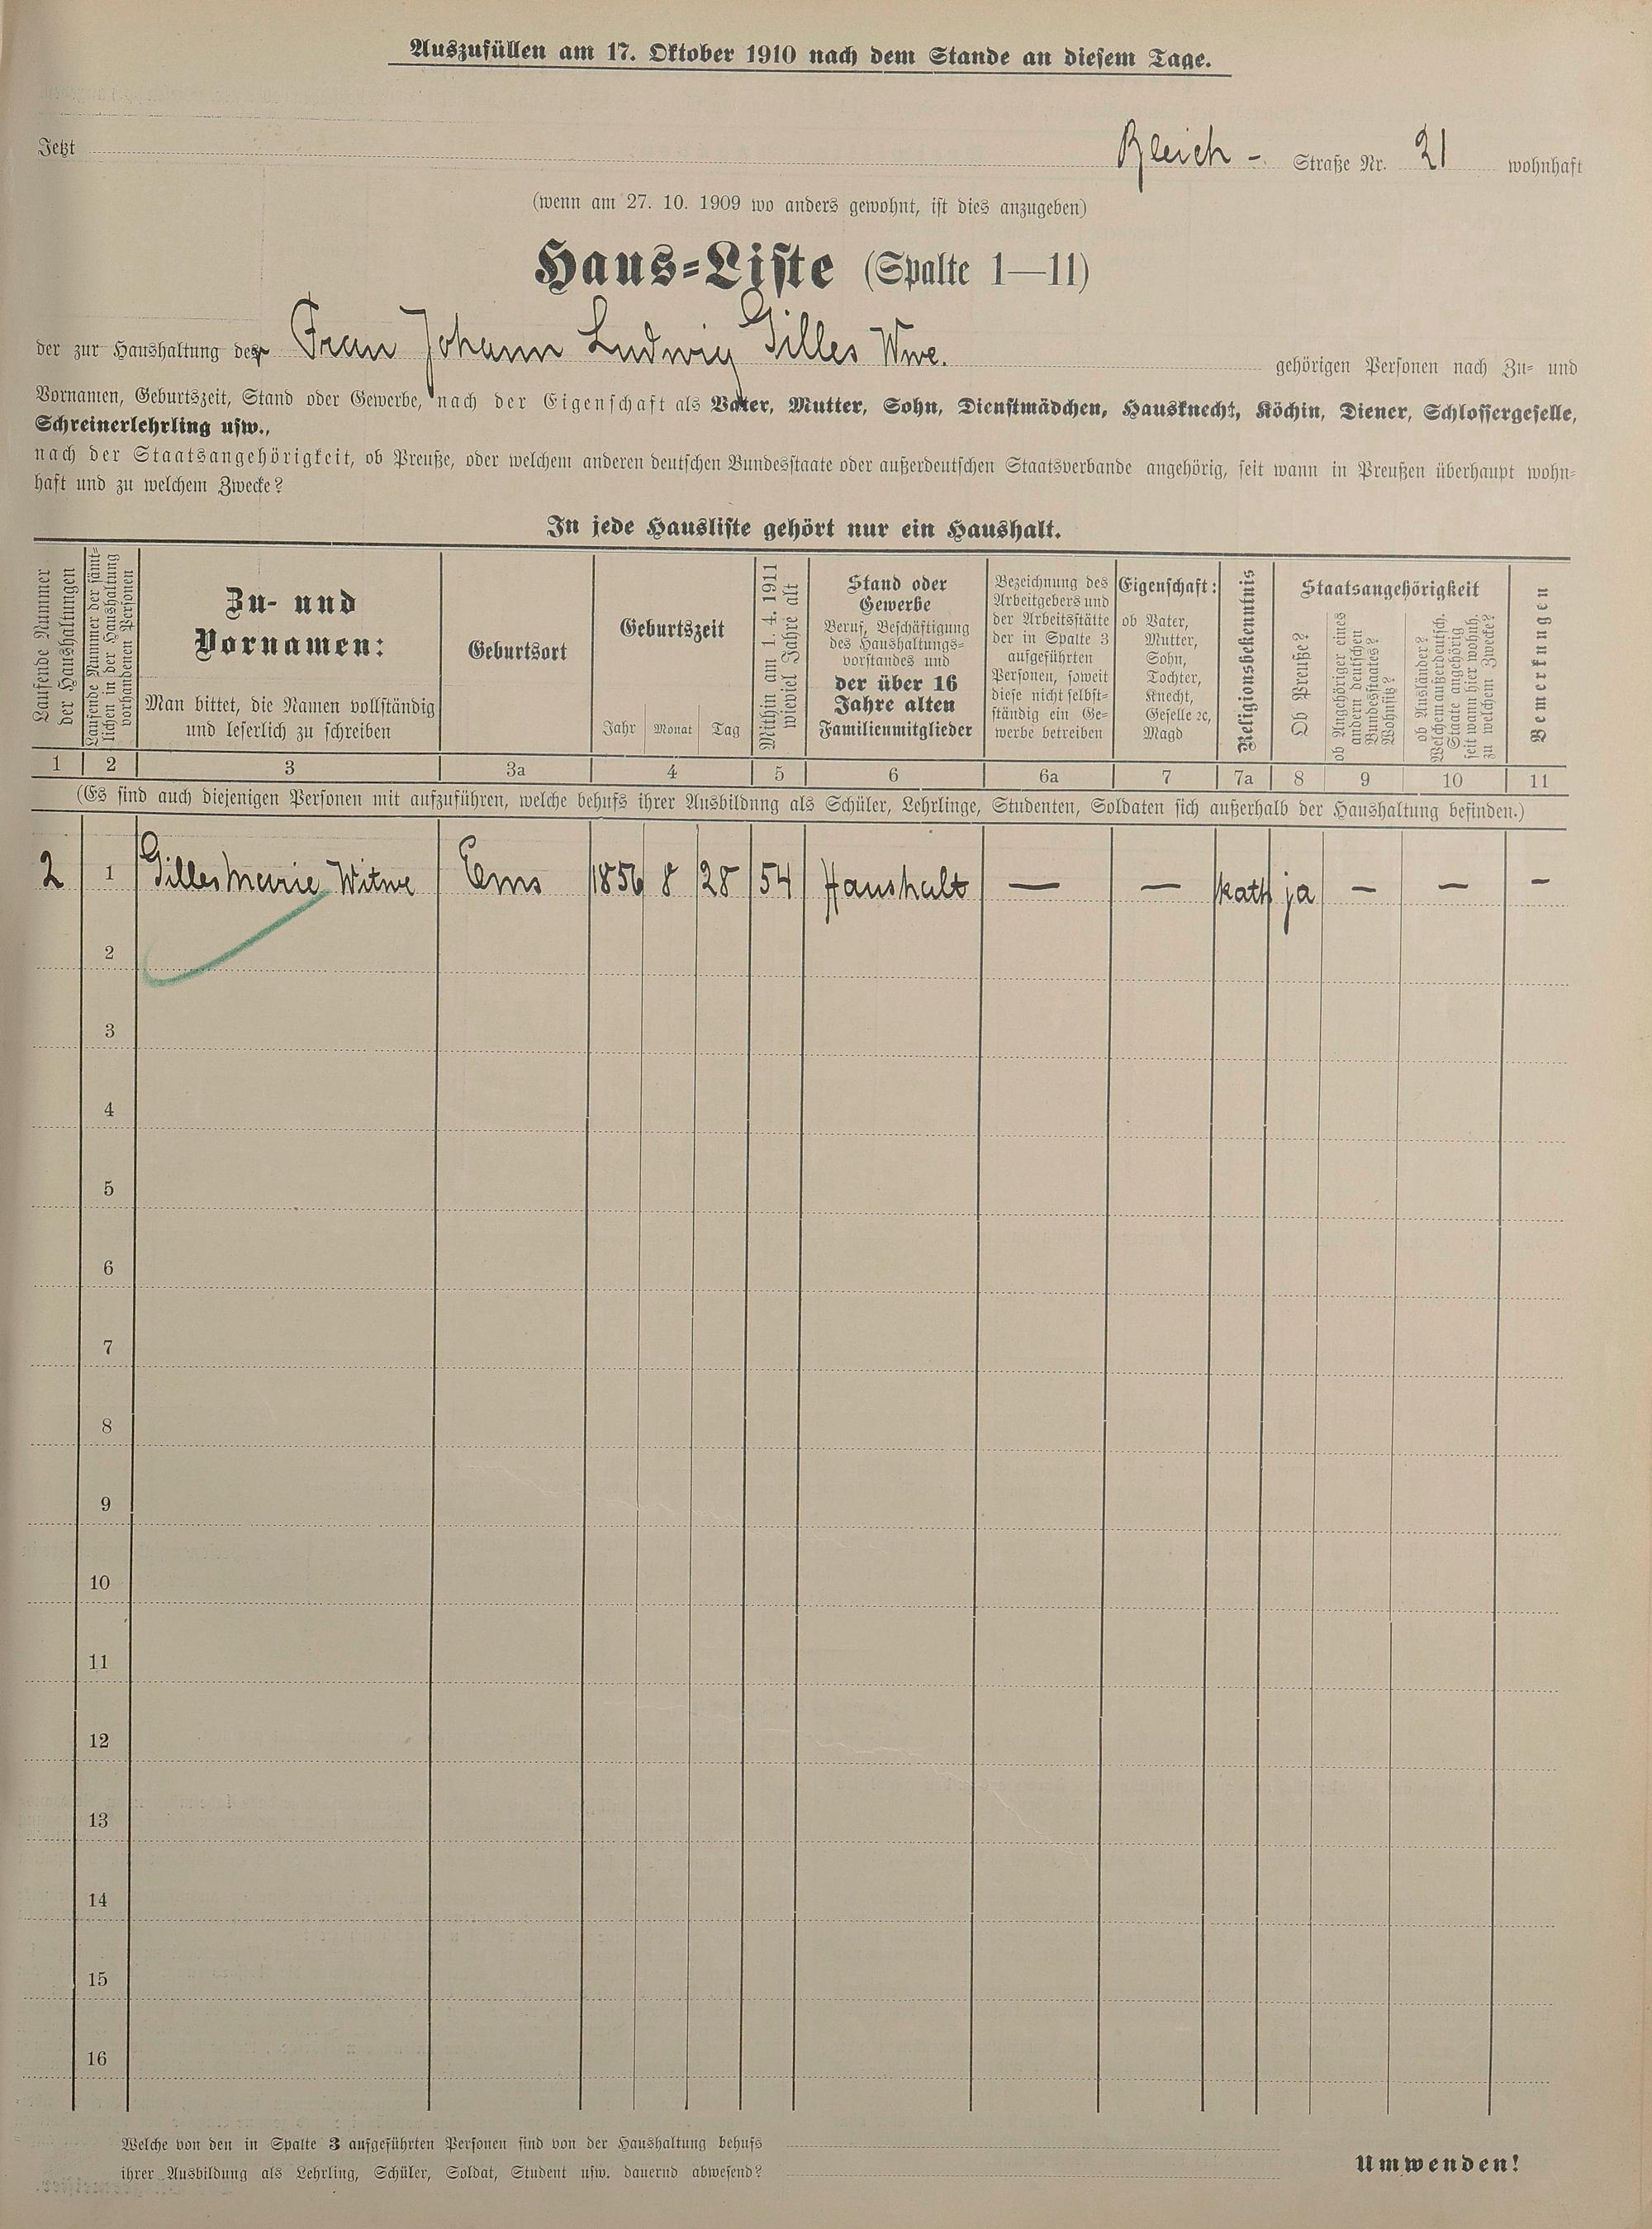 Auszufüllen am 17. Oktober 1910 nach dem Stande an diesem Tage.
Jetzt Bleich - Straße Nr. 21 wohnhaft
(wenn am 27. 10. 1909 wo anders gewohnt, ist dies anzugeben)
Haus=Liste (Spalte 1—11)
der zur Haushaltung der Frau Johann Ludwig Gilles Wwe. gehörigen Personen nach Zu= und
Vornamen, Geburtszeit, Stand oder Gewerbe, nach der Eigenschaft als Vater, Mutter, Sohn, Dienstmädchen, Hausknecht, Köchin, Diener, Schlossergeselle,
Schreinerlehrling usw.,
nach der Staatsangehörigkeit, ob Preuße, oder welchem anderen deutschen Bundesstaate oder außerdeutschen Staatsverbande angehörig, seit wann in Preußen überhaupt wohn=
haft und zu welchem Zwecke?
In jede Hausliste gehört nur ein Haushalt.
Laufende Nummer
der Haushaltungen
Laufende Nummer der sämt=
lichen in der Haushaltung
vorhandenen Personen
Zu- und
Vornamen:
Man bittet, die Namen vollständig
und leserlich zu schreiben
Geburtsort
Geburtszeit
Jahr Monat Tag
Mithin am 1. 4. 1911
wieviel Jahre alt
Stand oder
Gewerbe
Beruf, Beschäftigung
des Haushaltungs=
vorstandes und
der über 16
Jahre alten
Familienmitglieder
Bezeichnung des
Arbeitgebers und
der Arbeitsstätte
der in Spalte 3
aufgeführten
Personen, soweit
diese nicht selbst=
ständig ein Ge=
werbe betreiben
Eigenschaft:
ob Vater,
Mutter,
Sohn,
Tochter,
Knecht,
Geselle ꝛc,
Magd
Religionsbekenntnis
Staatsangehörigkeit
Ob Preuße?
ob Angehöriger eines
andern deutschen
Bundesstaates?
Wohnsitz?
ob Ausländer?
Welchem außerdeutsch.
Staate angehörig
seit wann hier wohnh.
zu welchem Zwecke?
Bemerkungen
1 2 3 3a 4 5 6 6a 7 7a 8 9 10 11
(Es sind auch diejenigen Personen mit aufzuführen, welche behufs ihrer Ausbildung als Schüler, Lehrlinge, Studenten, Soldaten sich außerhalb der Haushaltung befinden.)
2 1 Gilles Marie Witwe Ems 1856 8 28 54 Haushalt — — kath ja — — —
2
3
4
5
6
7
8
9
10
11
12
13
14
15
16
Welche von den in Spalte 3 aufgeführten Personen sind von der Haushaltung behufs
ihrer Ausbildung als Lehrling, Schüler, Soldat, Student usw. dauernd abwesend?
Umwenden!